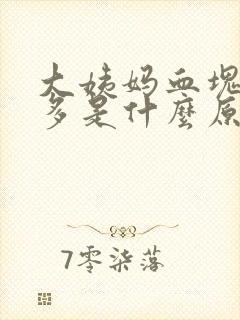 大姨妈血塊
多是什麼原
7零柒落